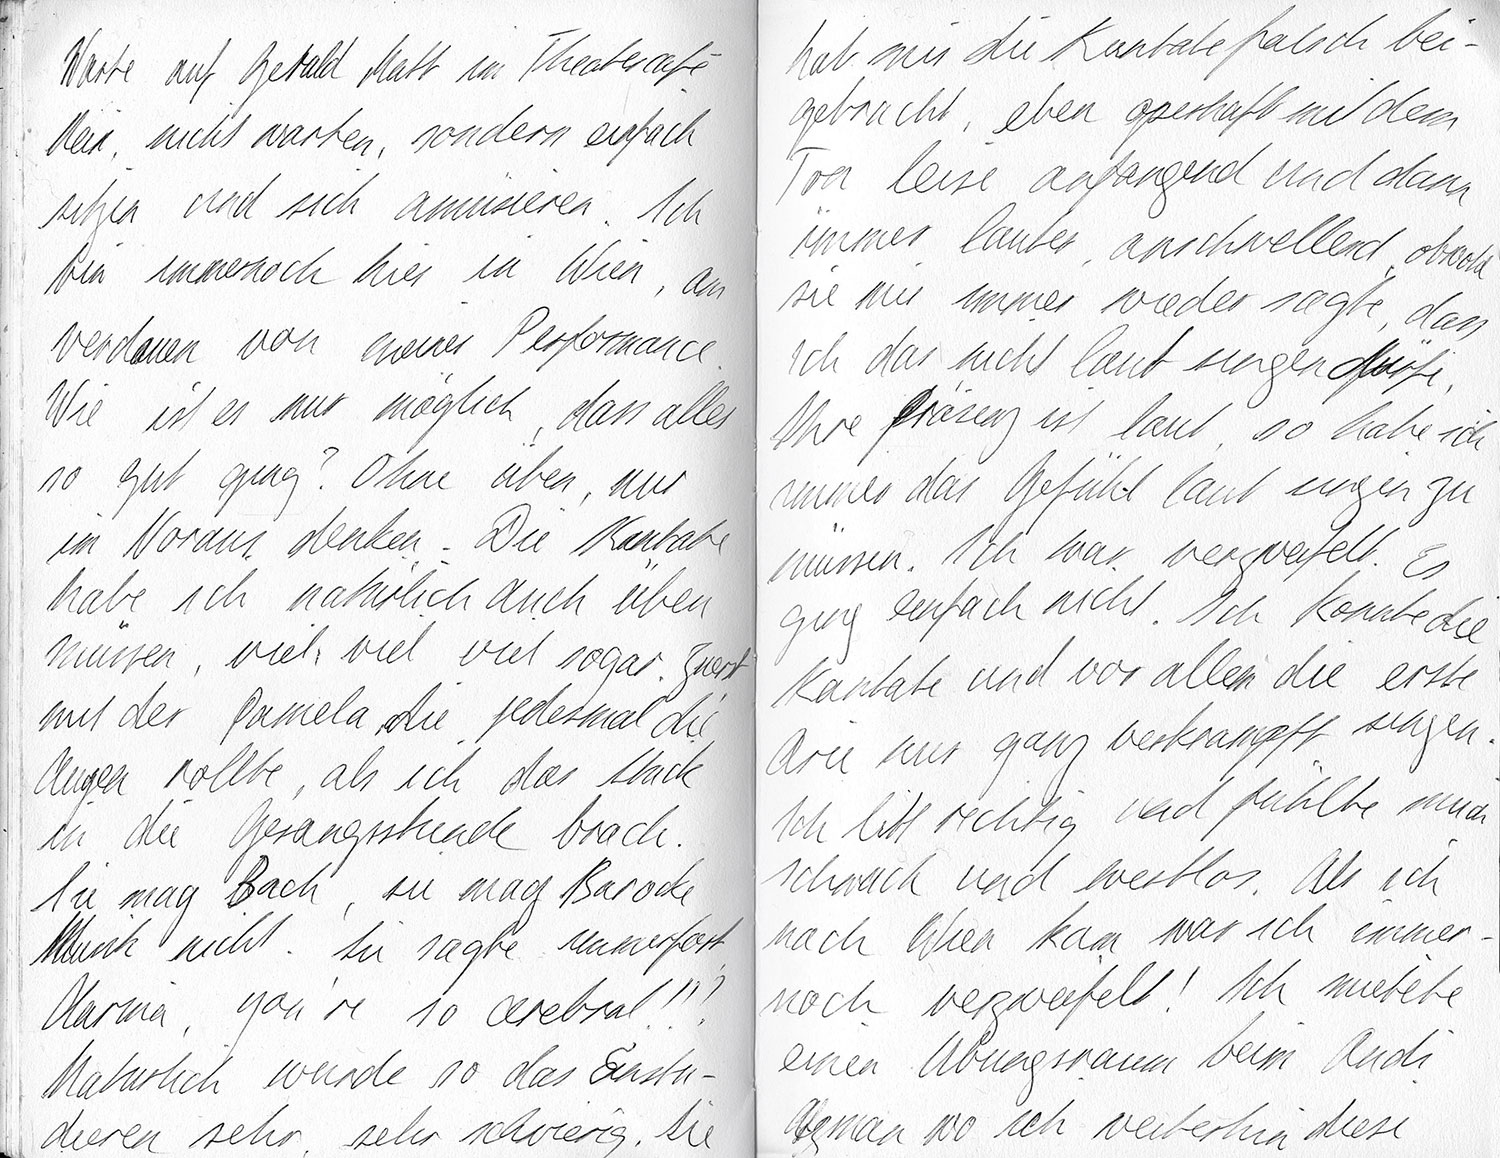 Warte auf Gerald Matt im Theatercafé
Nein, nicht warten, sondern einfach
sitzen und sich amüsieren. Ich
bin immernoch hier in Wien, am
verdauen von meiner Performance.
Wie ist es nur möglich, dass alles
so gut ging? Ohne üben, nur
im Voraus denken. Die Kantate
habe ich natürlich auch üben
müssen, viel, viel viel sogar. Zuerst
mit der Pamela, die jedesmal die
Augen rollte, als ich das Stück
in die Gesangsstunde brach.
Sie mag Bach, sie mag Barocke
Musik nicht. Sie sagte immerfort,
you're so cerebral!!!
Natürlich wurde so das Einstu-
dieren sehr, sehr schwierig. Sie
hat mir die Kantate falsch bei-
gebracht, eben opernhaft mit dem
Ton leise anfangend und dann
immer lauter, anschwellend, obwohl
sie mir immer wieder sagte, dass
ich das nicht laut singen dürfe.
Ihre Präsenz ist laut, so habe ich
immer das Gefühl laut singen zu
müssen. Ich war verzweifelt. Es
ging einfach nicht. Ich konnte die
Kantate und vor allem die erste
Arie nur ganz verkrampft singen.
Ich litt richtig und fühlte mich
schwach und wertlos. Als ich
nach Wien kam war ich immer-
noch verzweifelt! Ich mietete
einen Übungsraum beim Andi
wo ich weiterhin diese